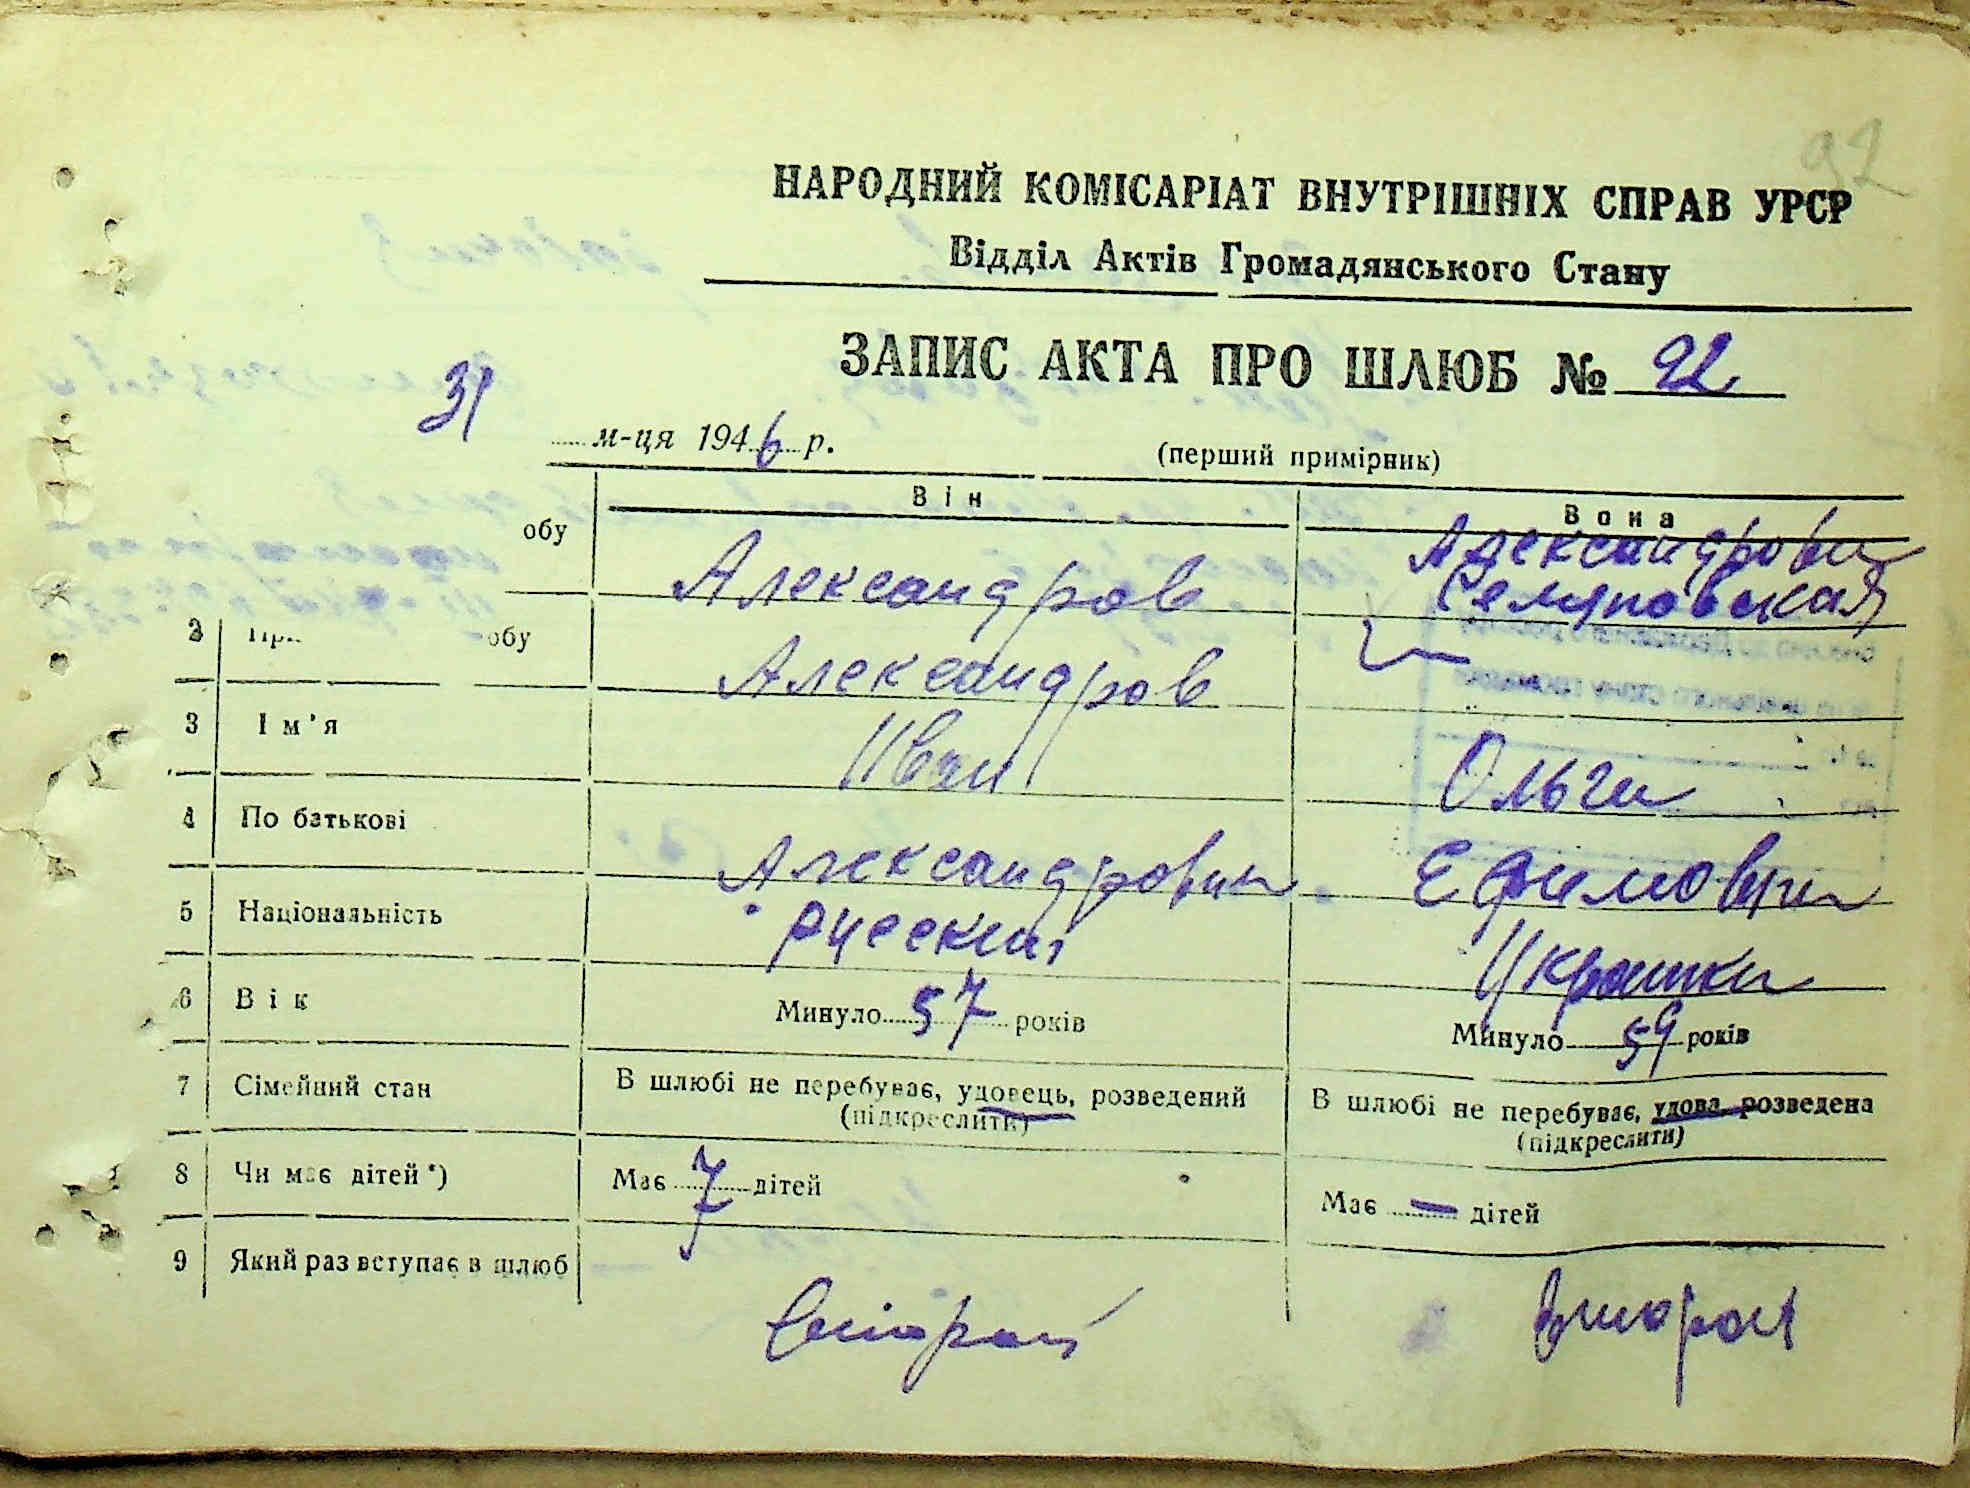 92
НАРОДНИЙ КОМІСАРІАТ ВНУТРІШНІХ СПРАВ УРСР
Відділ Актів Громадянського Стану
ЗАПИС АКТА ПРО ШЛЮБ № 92
31
м-ця 1946 р.
(перший примірник)
Він
Вона
обу
Александров
Александрова
Семуповская
2 При обу
Александров
3 Ім'я
Иван
Ольга
4 По батькові
Александрович
Ефимовна
5 Національність
русский
Украинка
6 Вік
Минуло 57 років
Минуло 59 років
7 Сімейний стан
В шлюбі не перебуває, удовець, розведений
(підкреслити)
В шлюбі не перебуває, удова, розведена
(підкреслити)
8 Чи має дітей *)
Має 7 дітей
Має — дітей
9 Який раз вступає в шлюб
второй
вторая